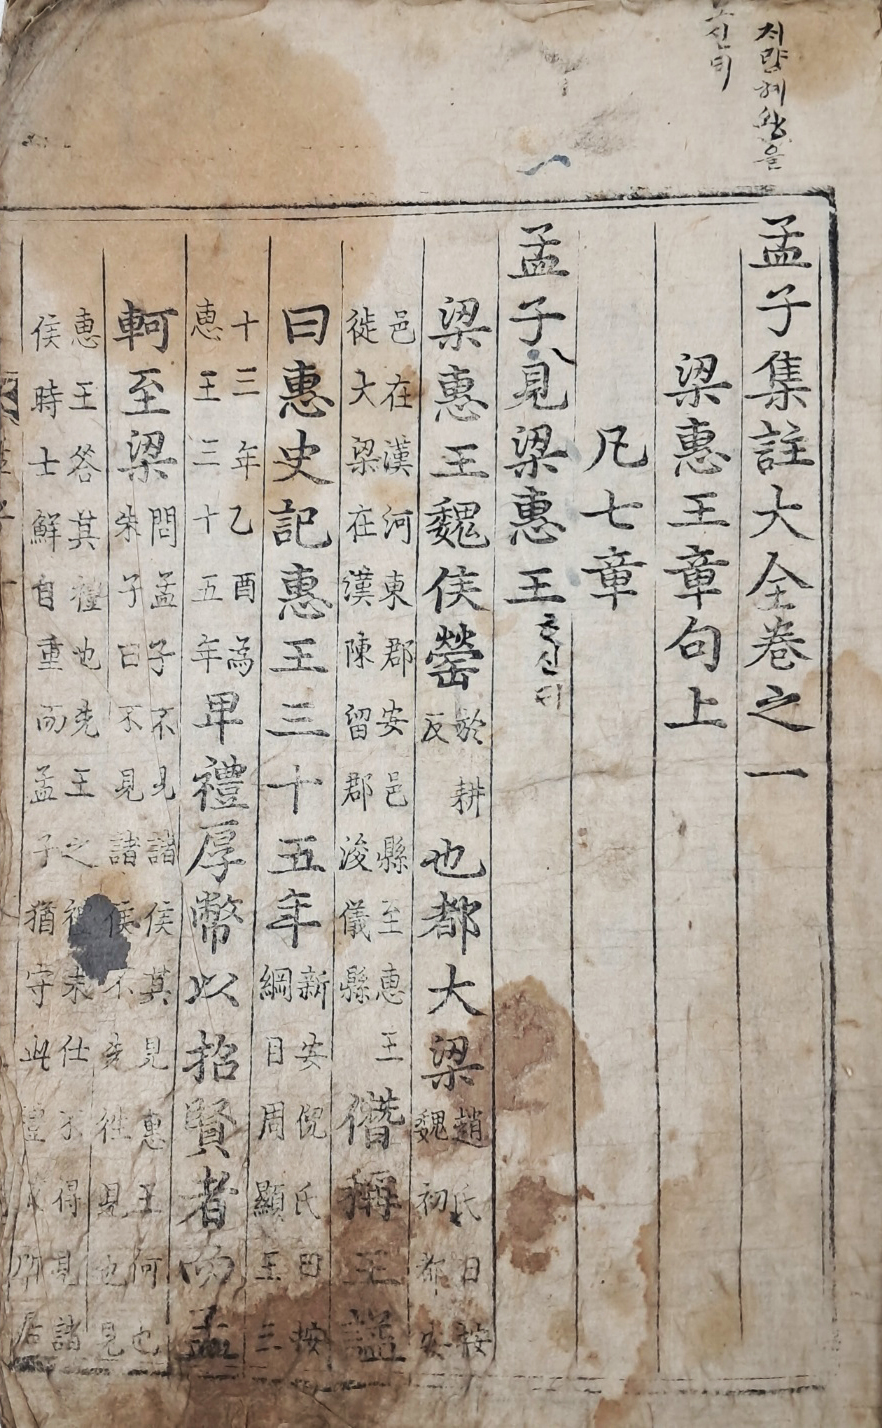 치량혜왕을
孟子集註大全卷之一
梁惠王章句上
凡七章
孟子見梁惠王
梁惠王魏侯罃於耕反也都大梁趙氏曰按魏初都安
邑在漢河東郡安邑縣至惠王徙大梁在漢陳留郡浚儀縣僭稱王諡
曰惠史記惠王三十五年新安倪氏曰按綱目周顯王三
十三年乙酉為惠王三十五年卑禮厚幣以招賢者而孟
軻至梁問孟子不見諸侯其見惠王何也朱子曰不見諸侯不先往見也見
惠王答其禮也先王之禮未仕不得見諸侯時士鮮自重而孟子猶守此禮故所居